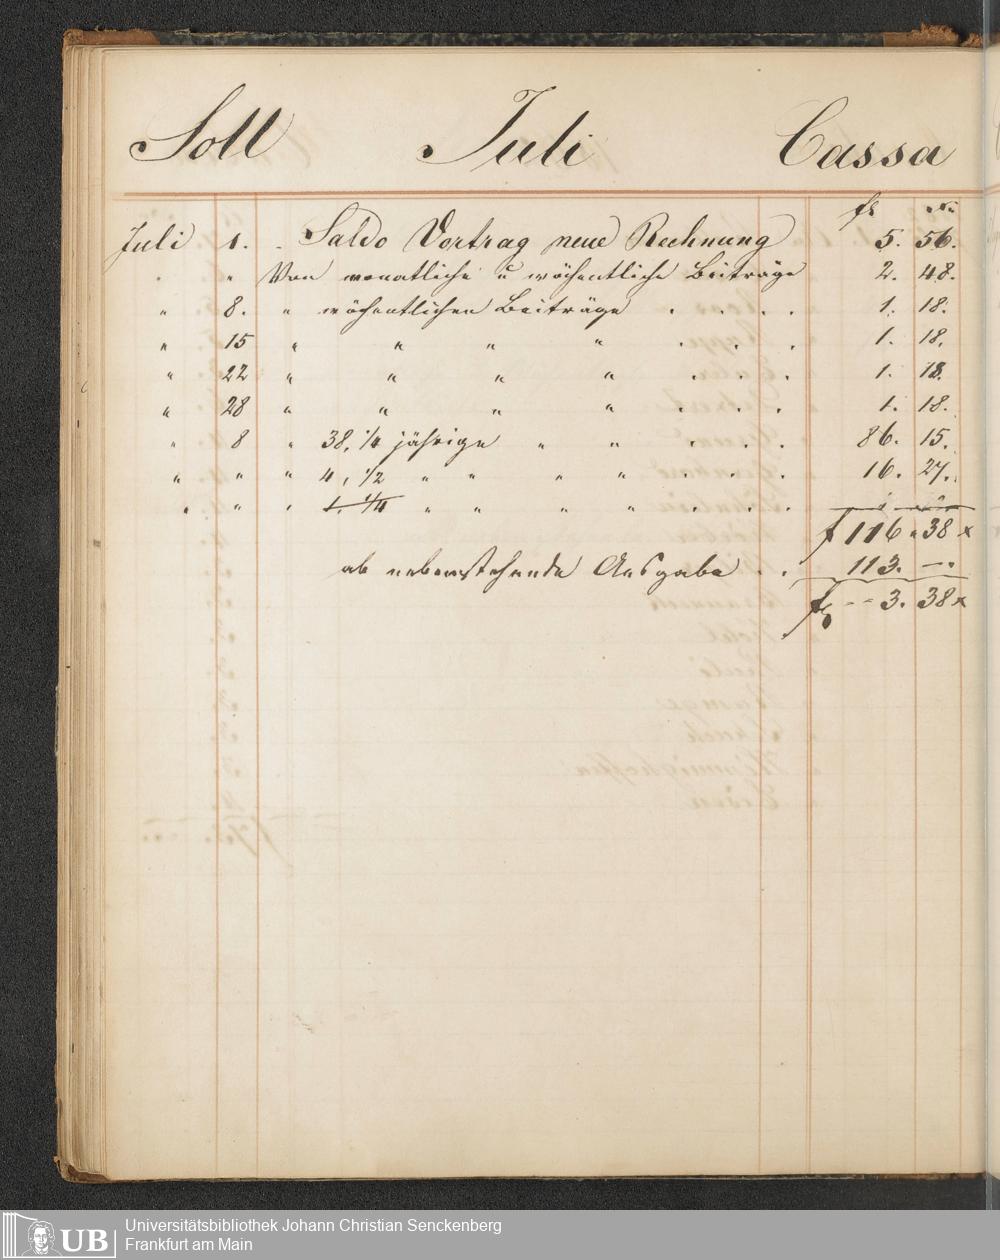 Soll Juli Cassa
fl xr
Juli 1. Saldo Vortrag neue Rechnung 5. 56.
" " Von monatliche u wöchentliche Beiträge 2. 48.
" 8. " wöchentlichen Beiträge . . . . 1. 18.
" 15 " " " " . . . 1. 18.
" 22 " " " " . . . 1. 18.
" 28 " " " " . . . 1. 18.
" 8 " 38, 1/4 jährige " " . . . 86. 15.
" " " 4, 1/2 " " " " . . . 16. 27.
" " " 1. 1/4 " " " " . . .
f 116. 38 x
ab nebenstehende Ausgabe . . 113. —.
fl -- 3. 38 x
UB Universitätsbibliothek Johann Christian Senckenberg
Frankfurt am Main